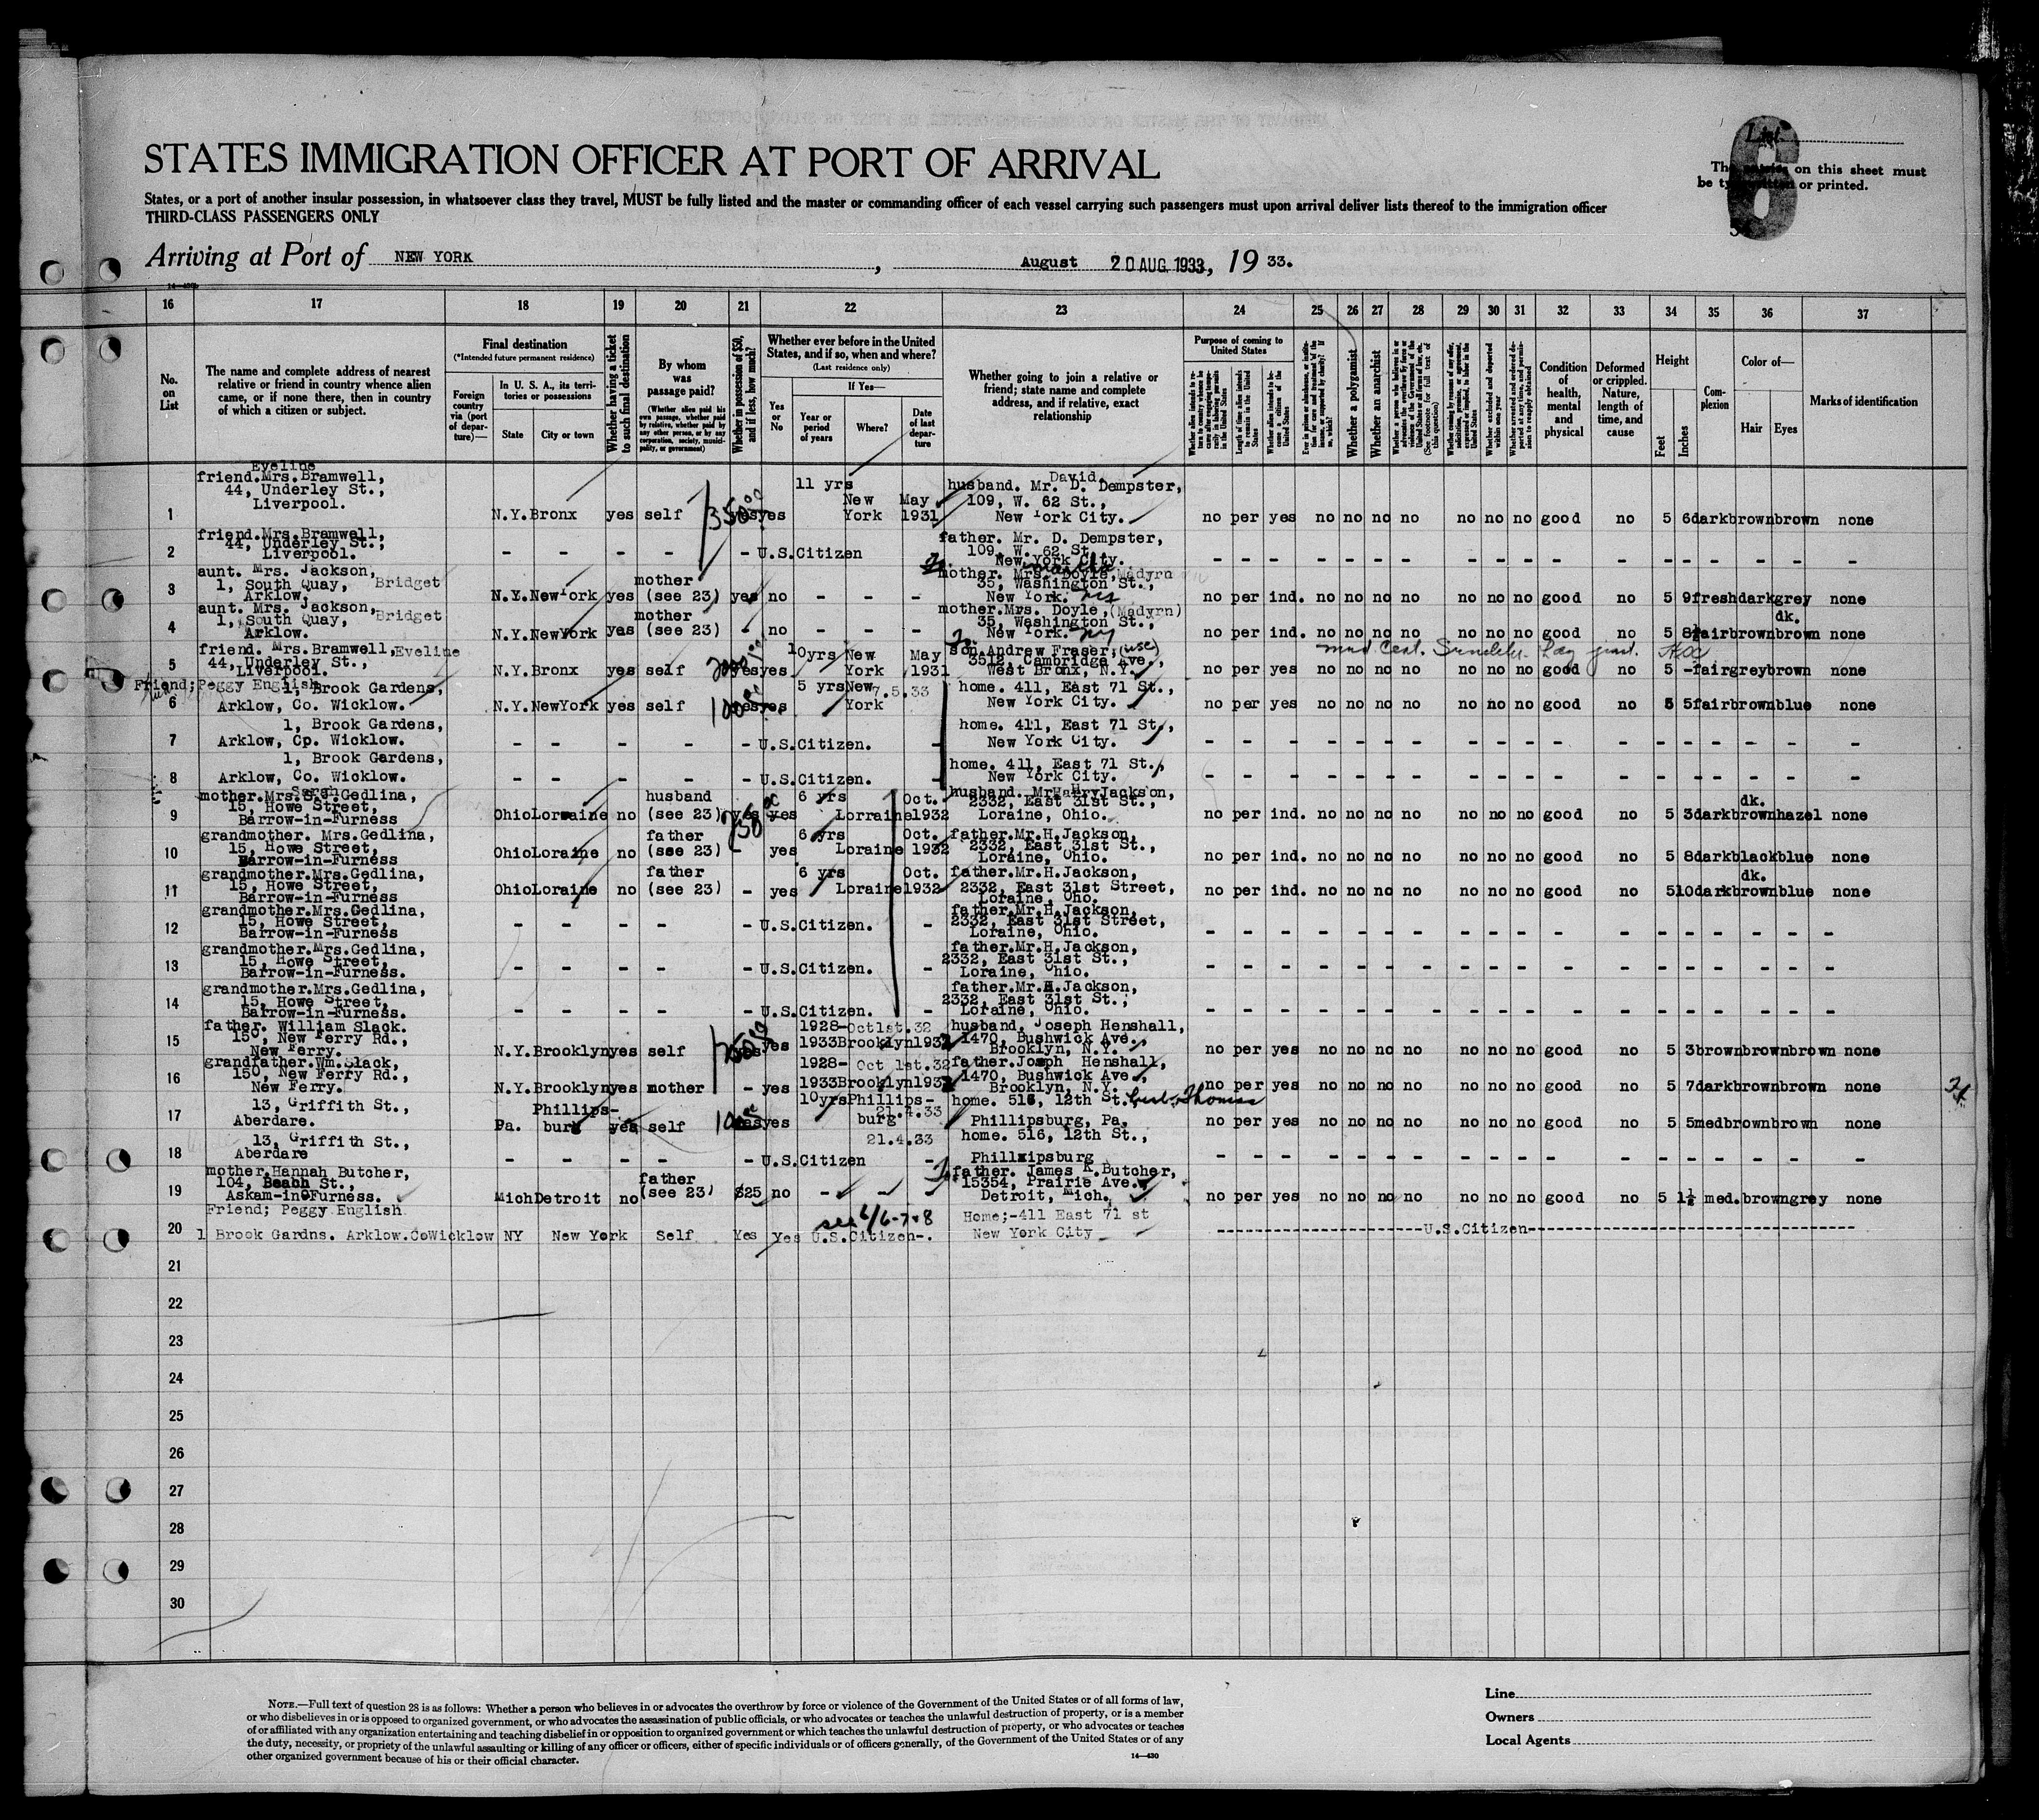 List
6
STATES IMMIGRATION OFFICER AT PORT OF ARRIVAL
The on this sheet must
be or printed.
States, or a port of another insular possession, in whatsoever class they travel, MUST be fully listed and the master or commanding officer of each vessel carrying such passengers must upon arrival deliver lists thereof to the immigration officer
THIRD-CLASS PASSENGERS ONLY
Arriving at Port of NEW YORK, August 20 AUG. 1933, 19 33.
16 17 18 19 20 21 22 23 24 25 26 27 28 29 30 31 32 33 34 35 36 37
No. on List
The name and complete address of nearest relative or friend in country whence alien came, or if none there, then in country of which a citizen or subject.
Final destination
(*Intended future permanent residence)
Foreign country via (port of departure)—
In U. S. A., its territories or possessions
State
City or town
Whether having a ticket to such final destination
By whom was passage paid?
(Whether alien paid his own passage, whether paid by relative, whether paid by any other person, or by any corporation, society, municipality, or government)
Whether in possession of $50, and if less, how much?
Whether ever before in the United States, and if so, when and where?
(Last residence only)
Yes or No
If Yes—
Year or period of years
Where?
Date of last departure
Whether going to join a relative or friend; state name and complete address, and if relative, exact relationship
Purpose of coming to United States
Length of time alien intends to remain in the United States
Whether alien intends to become a citizen of the United States
Whether a polygamist
Whether an anarchist
Condition of health, mental and physical
Deformed or crippled. Nature, length of time, and cause
Height
Feet
Inches
Complexion
Color of—
Hair
Eyes
Marks of identification
1 friend.Mrs.Bramwell, Eveline
44, Underley St.,
Liverpool.
N.Y. Bronx yes self 350.00 yes yes 11 yrs New York May 1931
husband. Mr. D. Dempster, David
109, W. 62 St.,
New York City.
no per yes no no no no no no no good no 5 6 dark brown brown none
2 friend.Mrs.Bramwell,
44, Underley St.,
Liverpool.
- - - - - U.S.Citizen
father. Mr. D. Dempster,
109, W. 62 St.
New York City.
3 aunt. Mrs. Jackson, Bridget
1, South Quay,
Arklow.
N.Y. New York yes mother (see 23) yes no - - -
mother. Mrs. Doyle, Madyrn
35, Washington St.,
New York.
no per ind. no no no no no no no good no 5 9 fresh dark grey none
4 aunt. Mrs. Jackson, Bridget
1, South Quay,
Arklow.
N.Y. New York yes mother (see 23) - no - - -
mother.Mrs. Doyle, (Madyrn)
35, Washington St.,
New York. NY
no per ind. no no no no no no no good no 5 8½ fair brown dk. brown none
5 friend. Mrs.Bramwell, Eveline
44, Underley St.,
Liverpool.
N.Y. Bronx yes self yes yes 10yrs New York May 1931
son.Andrew Fraser, (USC)
3512, Cambridge Ave.,
West Bronx, N.Y.
med. cert.
no per yes no no no no no no no good no 5 - fair grey brown none
6 Friend; Peggy English
1, Brook Gardens,
Arklow, Co. Wicklow.
N.Y. New York yes self yes yes 5 yrs New York 7.5.33
home. 411, East 71 St.,
New York City.
no per yes no no no no no no no good no 5 5 fair brown blue none
7 1, Brook Gardens,
Arklow, Cp. Wicklow.
- - - - - U.S.Citizen. -
home. 411, East 71 St.,
New York City.
8 1, Brook Gardens,
Arklow, Co. Wicklow.
- - - - - U.S.Citizen. -
home. 411, East 71 St.,
New York City.
9 mother.Mrs.S. Gedlina, Sarah
15, Howe Street,
Barrow-in-Furness
Ohio Lorraine no husband (see 23) yes yes 6 yrs Lorraine Oct. 1932
husband. Mr Harry Jackson,
2332, East 31st St.,
Loraine, Ohio.
no per ind. no no no no no no no good no 5 3 dark dk. brown hazel none
10 grandmother. Mrs.Gedlina,
15, Howe Street,
Barrow-in-Furness
Ohio Loraine no father (see 23) - yes 6 yrs Loraine Oct. 1932
father.Mr.H.Jackson,
2332, East 31st St.,
Loraine, Ohio.
no per ind. no no no no no no no good no 5 8 dark black blue none
11 grandmother.Mrs.Gedlina,
15, Howe Street,
Barrow-in-Furness
Ohio Loraine no father (see 23) - yes 6 yrs Loraine Oct. 1932
father.Mr.H.Jackson,
2332, East 31st Street,
Loraine, Oho.
no per ind. no no no no no no no good no 5 10 dark dk. brown blue none
12 grandmother.Mrs.Gedlina,
15, Howe Street,
Barrow-in-Furness
- - - - - U.S.Citizen. -
father.Mr.H.Jackson,
2332, East 31st Street,
Loraine, Ohio.
13 grandmother.Mrs.Gedlina,
15, Howe Street,
Barrow-in-Furness.
- - - - - U.S.Citizen. -
father.Mr.H.Jackson,
2332, East 31st St.,
Loraine, Ohio.
14 grandmother.Mrs.Gedlina,
15, Howe Street,
Barrow-in-Furness.
- - - - - U.S.Citizen. -
father.Mr.H.Jackson,
2332, East 31st St.,
Loraine, Ohio.
15 father. William Slack.
150, New Ferry Rd.,
New Ferry.
N.Y. Brooklyn yes self yes 1928-1933 Brooklyn Oct 1st.32 1932
husband, Joseph Henshall,
1470, Bushwick Ave.,
Brooklyn, N.Y.
no per yes no no no no no no no good no 5 3 brown brown brown none
16 grandfather.Wm.Slack,
150, New Ferry Rd.,
New Ferry.
N.Y. Brooklyn yes mother - yes 1928-1933 Brooklyn Oct 1st.32 1932
father Joseph Henshall,
1470, Bushwick Ave.,
Brooklyn, N.Y.
no per yes no no no no no no no good no 5 7 dark brown brown none
17 13, Griffith St.,
Aberdare.
Pa. Phillipsburg yes self yes yes 10yrs Phillipsburg 21.4.33
home. 516, 12th St. Thomas
Phillipsburg, Pa.
no per yes no no no no no no no good no 5 5 med brown brown none
18 13, Griffith St.,
Aberdare
- - - - - U.S.Citizen 21.4.33 -
home. 516, 12th St.,
Phillxipsburg
19 mother.Hannah Butcher,
104, Beach St.,
Askam-in-Furness.
Mich Detroit no father (see 23) $25 no - - -
father. James K.Butcher,
15354, Prairie Ave.,
Detroit, Mich.
no per yes no no no no no no no good no 5 1½ med. brown grey none
20 Friend; Peggy English
1 Brook Gardns. Arklow.CoWicklow NY New York Self Yes Yes U.S.Citizen-.
see 6/6-7-8
Home;-411 East 71 st
New York City
U.S.Citizen
21
22
23
24
25
26
27
28
29
30
NOTE.—Full text of question 28 is as follows: Whether a person who believes in or advocates the overthrow by force or violence of the Government of the United States or of all forms of law,
or who disbelieves in or is opposed to organized government, or who advocates the assassination of public officials, or who advocates or teaches the unlawful destruction of property, or is a member
of or affiliated with any organization entertaining and teaching disbelief in or opposition to organized government or which teaches the unlawful destruction of property, or who advocates or teaches
the duty, necessity, or propriety of the unlawful assaulting or killing of any officer or officers, either of specific individuals or of officers generally, of the Government of the United States or of any
other organized government because of his or their official character.
14—430
Line
Owners
Local Agents